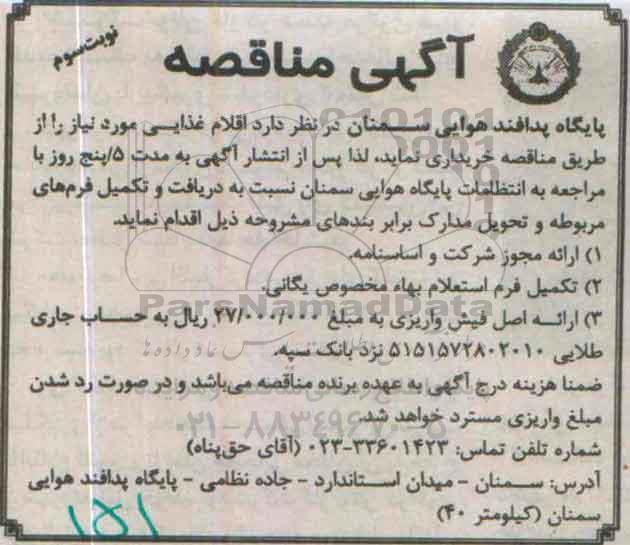 نوبت سوم
آگهی مناقصه
پایگاه پدافند هوایی سـمنان در نظر دارد اقلام غذایـی مورد نیاز را از
طریق مناقصه خریداری نماید، لذا پس از انتشار آگهی به مدت ۵/پنج روز با
مراجعه به انتظامات پایگاه هوایی سمنان نسبت به دریافت و تکمیل فرم‌های
مربوطه و تحویل مدارک برابر بندهای مشروحه ذیل اقدام نماید.
۱) ارائه مجوز شرکت و اساسنامه.
۲) تکمیل فرم استعلام بهاء مخصوص یگانی.
ParsNamadData
۳) ارائـه اصل فیش واریزی به مبلغ ۲۷/۰۰۰/۰۰۰ ریال به حسـاب جاری
طلایی ۵۱۵۱۵۷۲۸۰۲۰۱۰ نزد بانک سپه.
ضمنا هزینه درج آگهی به عهده برنده مناقصه می‌باشد و در صورت رد شدن
مبلغ واریزی مسترد خواهد شد.
۰۲۱-۸۸۳۴۹۶۷۰-۵
شماره تلفن تماس: ۳۳۶۰۱۴۲۳-۰۲۳ (آقای حق‌پناه)
آدرس: سـمنان - میدان اسـتاندارد - جاده نظامی - پایگاه پدافند هوایی
سمنان (کیلومتر ۴۰)
۱۵۱